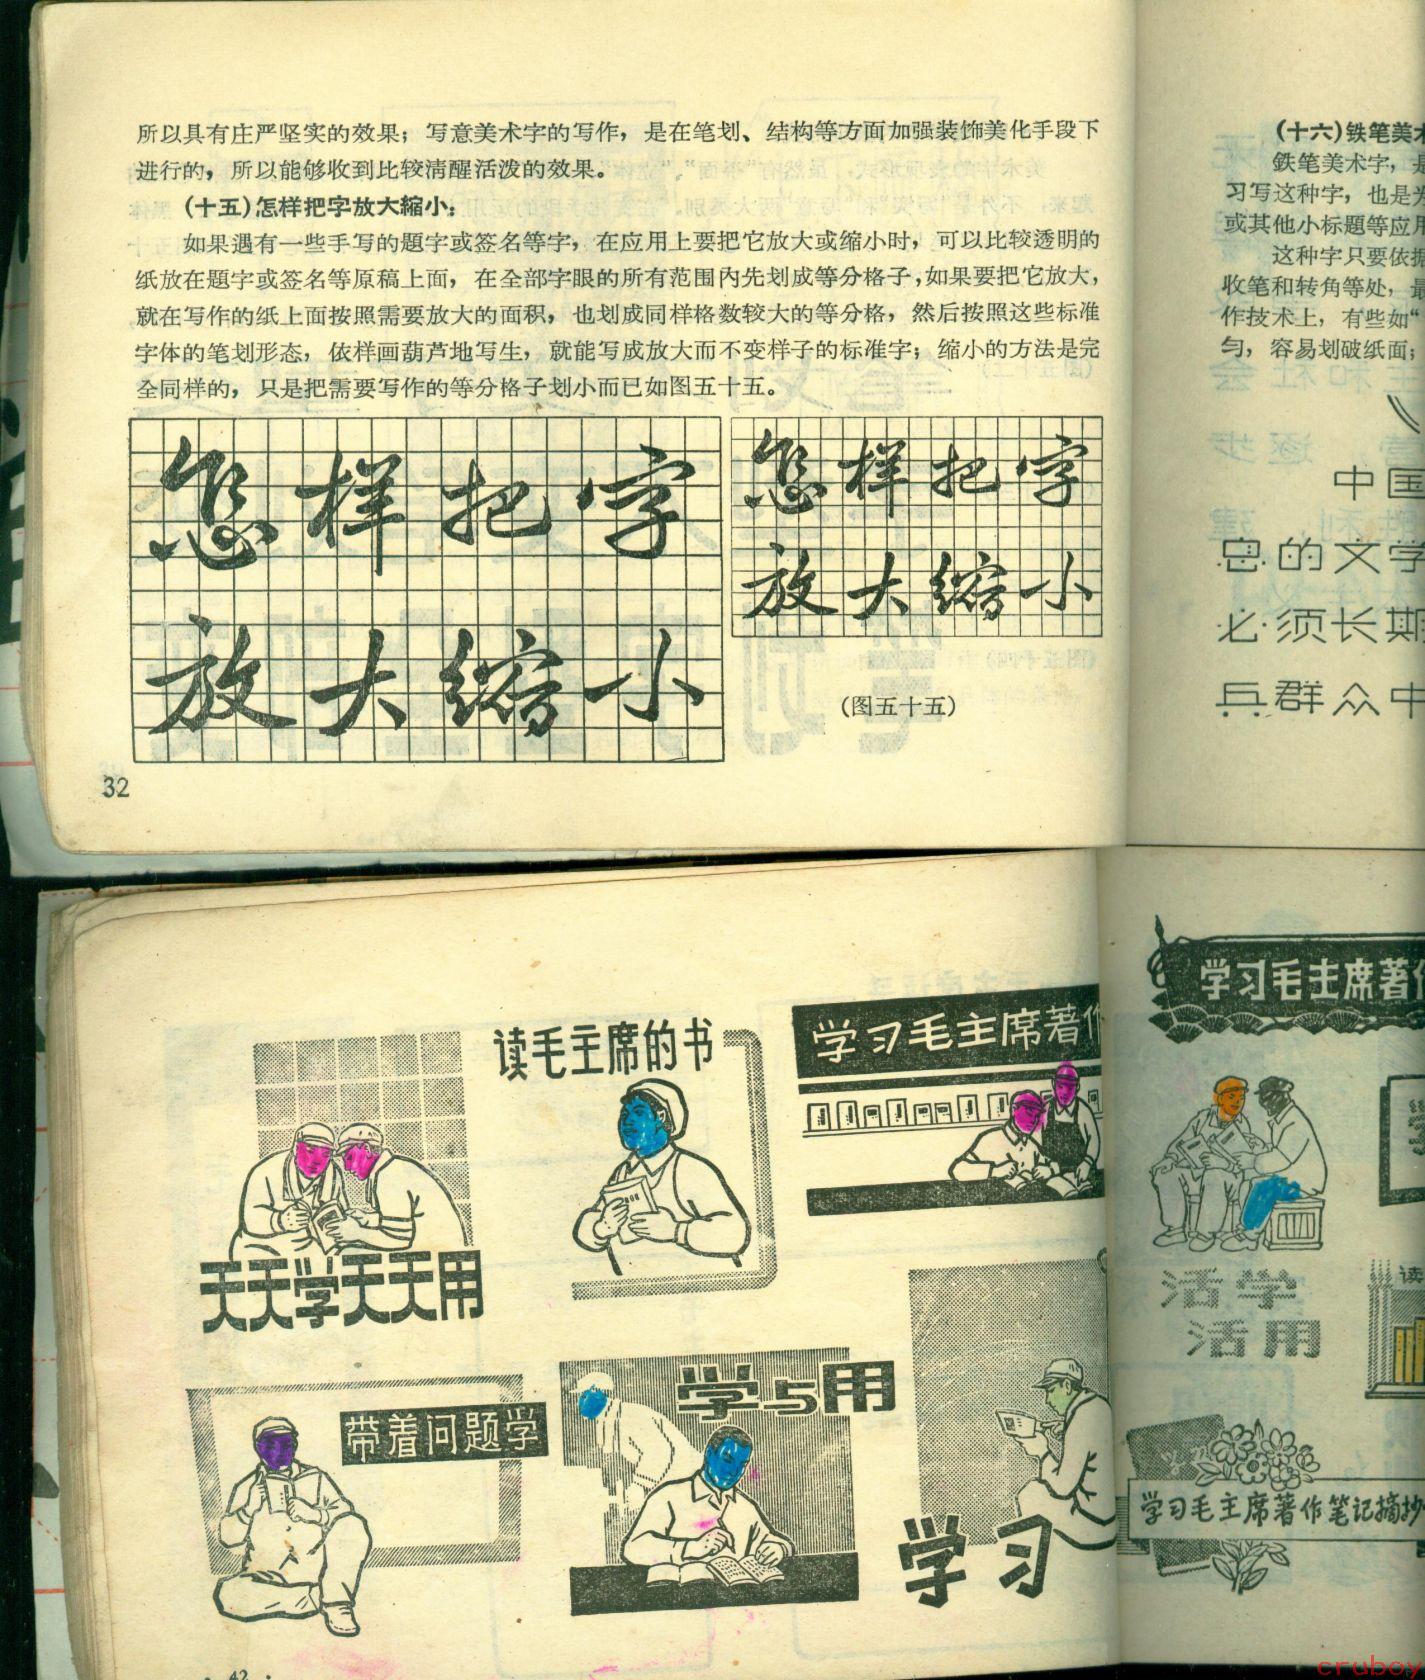 所以具有庄严坚实的效果；写意美术字的写作，是在笔划、结构等方面加强装饰美化手段下
进行的，所以能够收到比较清醒活泼的效果。
（十五）怎样把字放大縮小：
如果遇有一些手写的題字或签名等字，在应用上要把它放大或缩小时，可以比较透明的
纸放在題字或签名等原稿上面，在全部字眼的所有范围內先划成等分格子，如果要把它放大，
就在写作的纸上面按照需要放大的面积，也划成同样格数较大的等分格，然后按照这些标准
字体的笔划形态，依样画葫芦地写生，就能写成放大而不变样子的标准字；缩小的方法是完
全同样的，只是把需要写作的等分格子划小而已如图五十五。
怎样把字
放大缩小
怎样把字
放大缩小
（图五十五）
32
（十六）鉄笔美术
鉄笔美术字，是
习写这种字，也是
或其他小标題等应用
这种字只要依据
收笔和转角等处，最
作技术上，有些如“
匀，容易划破纸面；
中国
的文学
必须长斯
兵群众中
读毛主席的书
学习毛主席著作
天天学天天用
带着问题学
学与用
学习
42
学习毛主席著作
活学
活用
读
学习毛主席著作笔记摘抄
cruboy